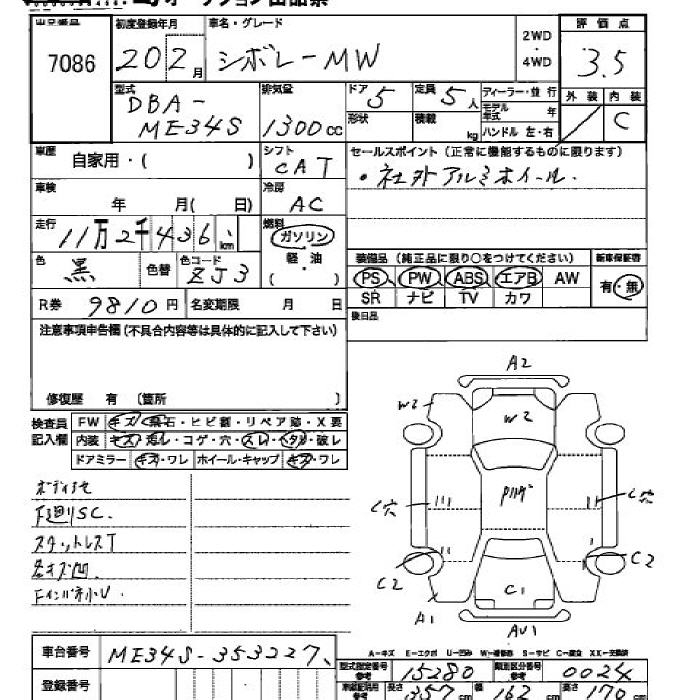 出品番号 7086
初度登録年月 202月
車名・グレード シボレーMW
2WD・4WD
評価点 3.5
外装 内装 C
型式 DBA-ME34S
排気量 1300cc
ドア 5 定員 5人
形状 積載 kg
ディーラー・並行
モデル年式 年
ハンドル 左・右
車歴 自家用・( )
シフト CAT
セールスポイント(正常に機能するものに限ります)
・社外アルミホイール.
車検 年 月( 日)
冷房 AC
走行 11万2千436km
燃料 ガソリン 軽油 ( )
色 黒 色替 色コード ZJ3
装備品(純正品に限り○をつけてください) 新車保証書
PS PW ABS エアB AW 有・無
SR ナビ TV カワ
R券 9810円 名変期限 月 日
後日品
注意事項申告欄(不具合内容等は具体的に記入して下さい)
修復歴 有 〔箇所 〕
検査員記入欄
FW キズ・飛石・ヒビ割・リペア跡・X要
内装 キズ・汚レ・コゲ・穴・スレ・ヘタリ・破レ
ドアミラー キズ・ワレ ホイール・キャップ キズ・ワレ
下廻りSC.
スタットレスT
A2
W2 W2
C穴 C穴
C2 C1 C2
A1 AU1
A-キズ E-エクボ U-凹み W-補修跡 S-サビ C-腐食 XX-交換済
車台番号 ME34S-353227
型式指定番号 参考 15280 類別区分番号 参考 0024
登録番号
長さ 357cm 幅 162cm 高さ 170cm